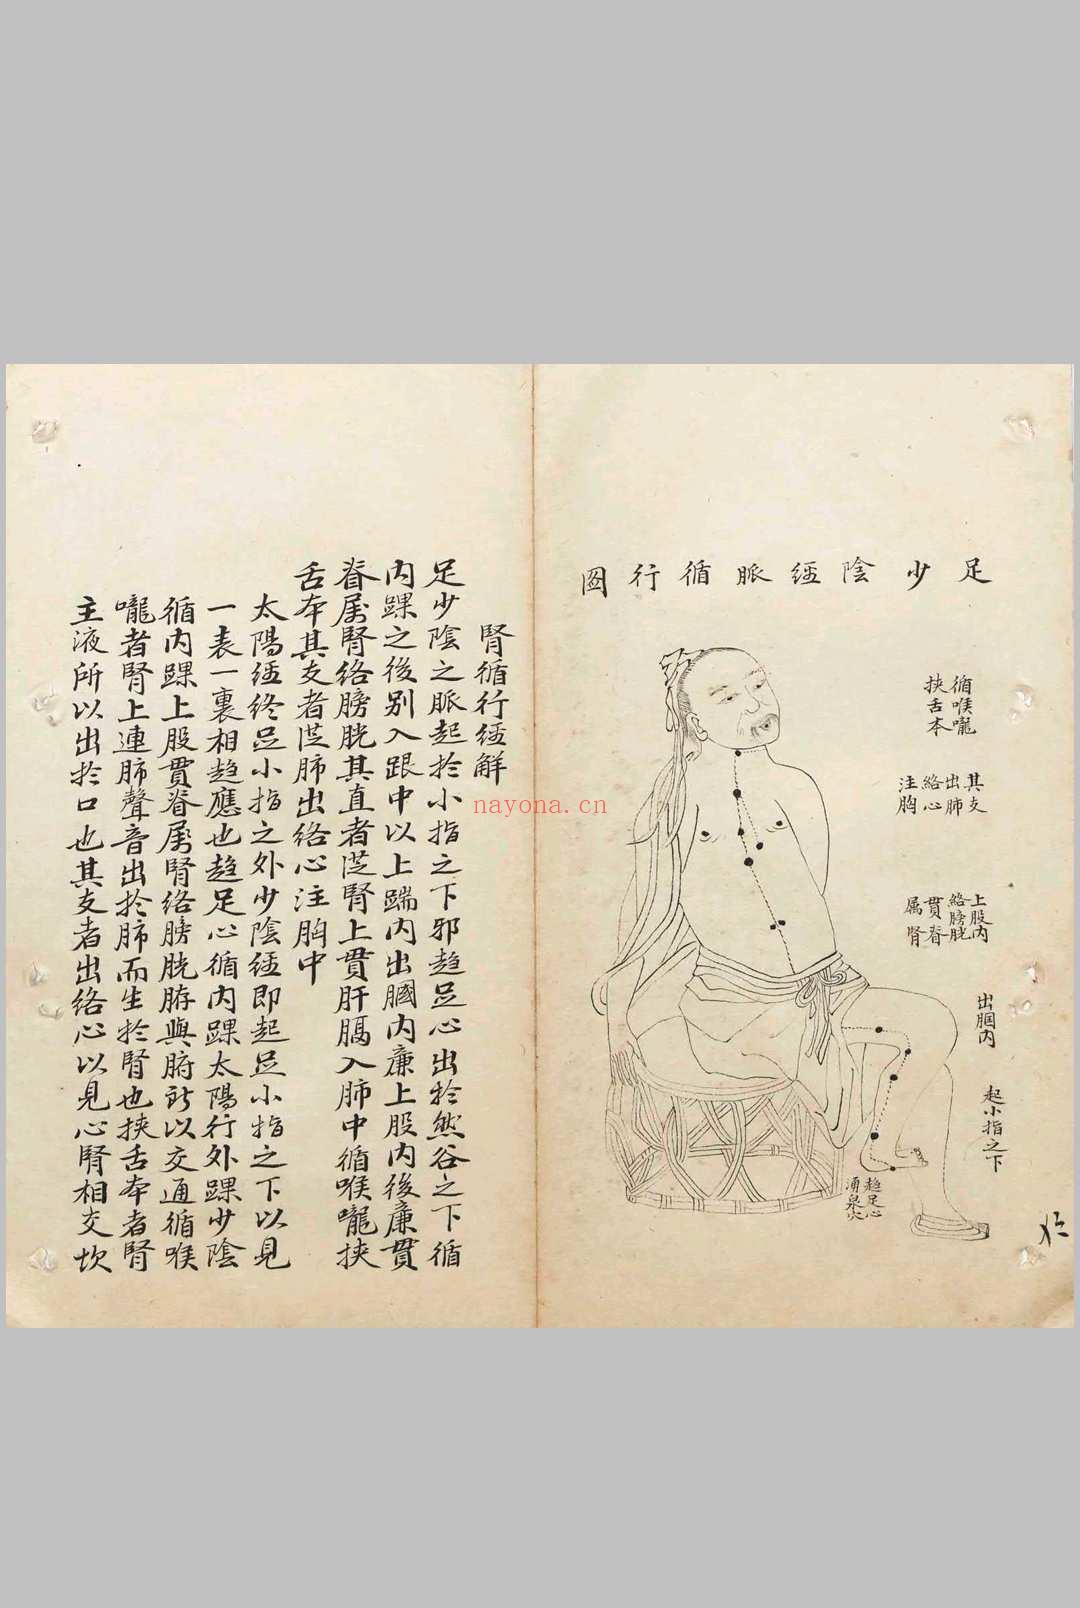 足少陰經脈循行圖
循喉嚨
挾舌本
其支
出肺
絡心
注胸
上股內
絡膀胱
貫脊
属腎
出膕內
起小指之下
趨足心
湧泉穴
腎循行經解
足少陰之脈起於小指之下邪趨足心出於然谷之下循
內踝之後别入跟中以上踹内出膕内廉上股内後廉貫
脊属腎絡膀胱其直者從腎上貫肝膈入肺中循喉嚨挾
舌本其支者從肺出絡心注胸中
太陽經終足小指之外少陰經即起足小指之下以見
一表一裏相趨應也趨足心循內踝太陽行外踝少陰
循内踝上股貫脊属腎絡膀胱臍與腑所以交通循喉
嚨者腎上連肺聲音出於肺而生於腎也挾舌本者腎
主液所以出於口也其支者出絡心以見心腎相交坎
nayona.cn